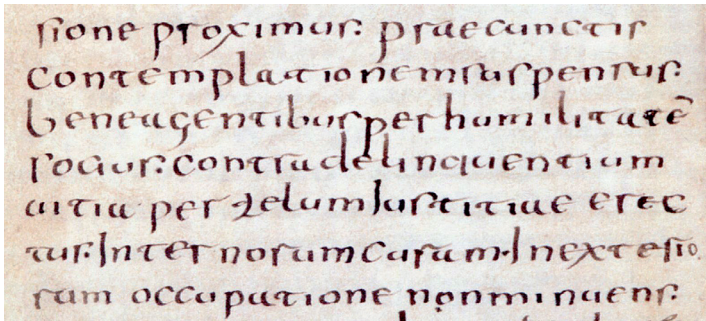 sione proximus. praecunctis
contemplationem suspensus.
bene agentibus per humilitatē
socius. contra delinquentium
uitia per zelum Iustitiae erec
tus. Internorum curam. In exterio
rum occupatione non minuens.